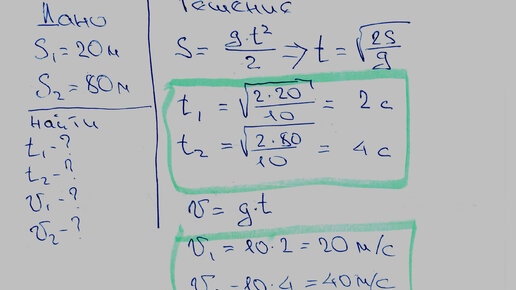 Дано
S₁ = 20м
S₂ = 80м
найти
t₁ - ?
t₂ - ?
v₁ - ?
v₂ - ?
Решение
S = g·t²/2 ⇒ t = √(2S/g)
t₁ = √(2·20/10) = 2 с
t₂ = √(2·80/10) = 4 с
v = g·t
v₁ = 10·2 = 20 м/с
v₂ = 10·4 = 40 м/с